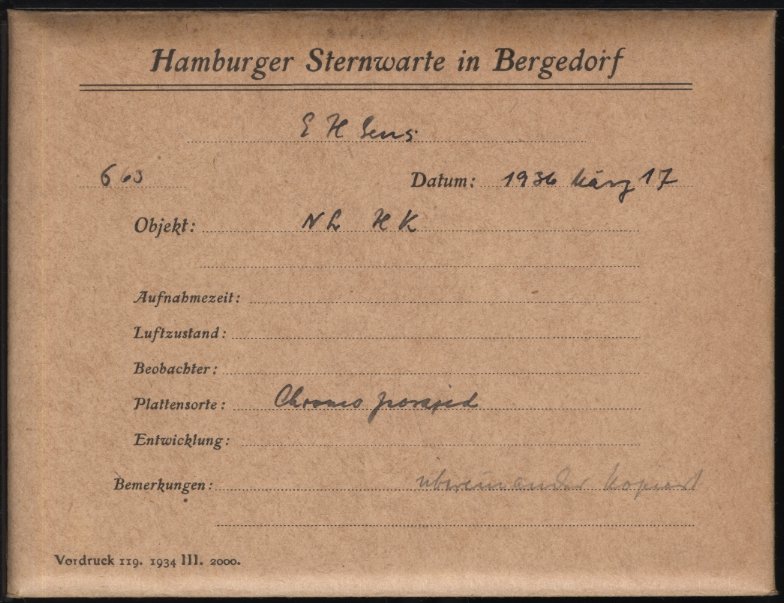 Hamburger Sternwarte in Bergedorf
E H
663 Datum: 1936 März 17
Objekt: N L H K
Aufnahmezeit:
Luftzustand:
Beobachter:
Plattensorte: Chromo
Entwicklung:
Bemerkungen: übereinander kopiert
Vordruck 119. 1934 III. 2000.